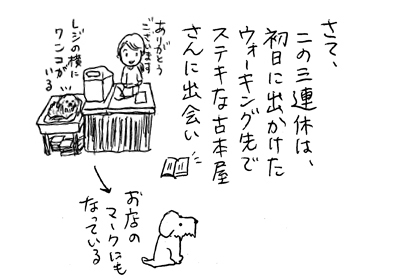 さて、
この三連休は、
初日に出かけた
ウォーキング先で
ステキな古本屋
さんに出会い
ありがとう
ございます
レジの横に
ワンコがいる
お店の
マークにも
なっている